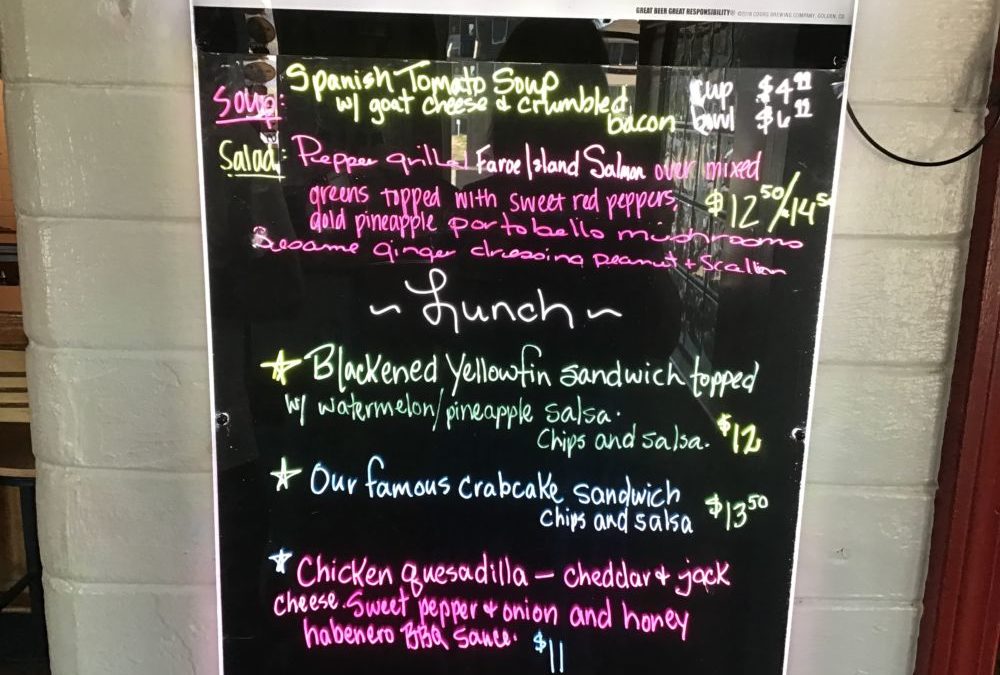 GREAT BEER GREAT RESPONSIBILITY® ©2018 COORS BREWING COMPANY, GOLDEN, CO
Soup: Spanish Tomato Soup cup $4.99
w/ goat cheese & crumbled bowl $6.99
bacon
Salad: Pepper grilled Faroe Island Salmon over mixed
greens topped with sweet red peppers, $12.50/14.50
gold pineapple portobello mushrooms
Sesame ginger dressing peanut + Scallion
~ Lunch ~
☆ Blackened Yellowfin sandwich topped
w/ watermelon/pineapple salsa.
Chips and salsa. $12
☆ Our famous crabcake sandwich
Chips and salsa $13.50
☆ Chicken quesadilla – cheddar & jack
cheese. Sweet pepper & onion and honey
habenero BBQ sauce. $11